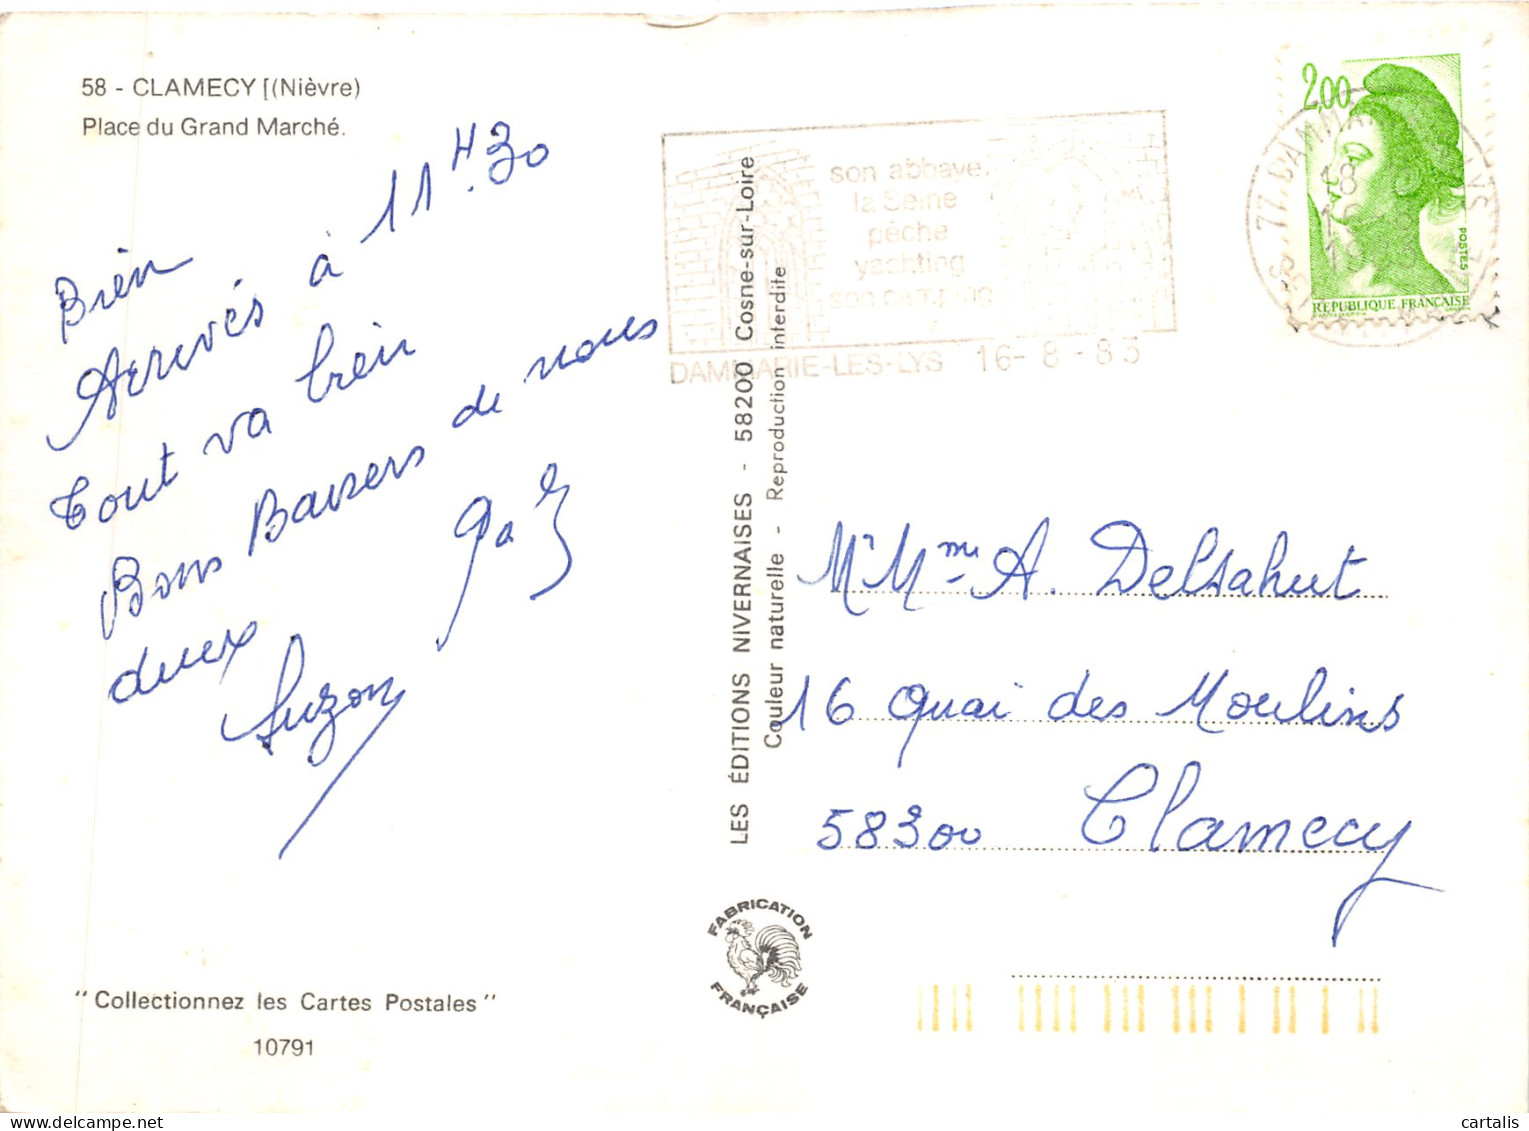 58 - CLAMECY [(Nièvre)
Place du Grand Marché.
Bien
Arrivés à 11 H.30
Tout va bien
Bons Baisers de nous
deux
Suzon
"Collectionnez les Cartes Postales"
10791
LES ÉDITIONS NIVERNAISES - 58200 Cosne-sur-Loire
Couleur naturelle - Reproduction interdite
FABRICATION
FRANÇAISE
son abbaye
la Seine
pêche
yachting
son camping
DAMMARIE-LES-LYS 16-8-83
2,00
POSTES
RÉPUBLIQUE FRANÇAISE
77. DAMMARIE LYS
18 H
16-8
1983
Mr Mme A. Delsahut
16 Quai des Moulins
58300 Clamecy
cartalis